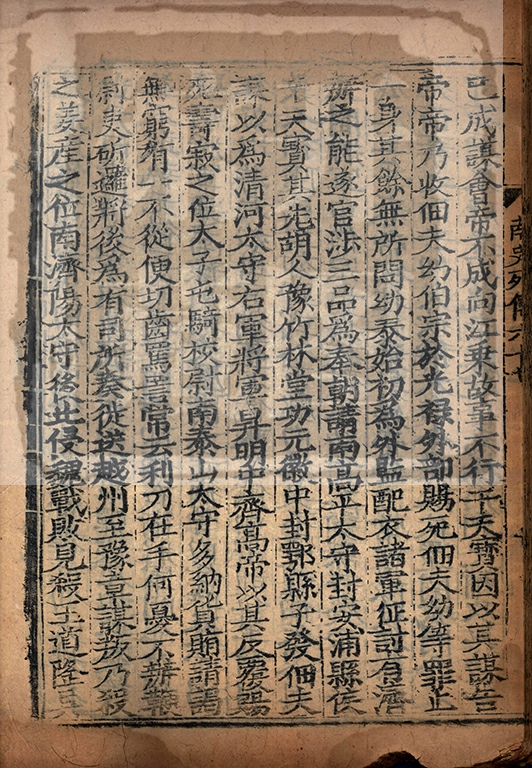 已成謀會帝不成向江乗故事不行于天寳因以其謀告
帝帝乃收佃夫㓜伯宗於光禄外部賜死佃夫㓜等罪止
一身其餘無所問㓜泰始初為外監配衣諸軍征討有濟
辦之能遂官涉三品為奉朝請南髙平太守封安浦縣侯
于天寳其先胡人豫竹林堂功元徽中封鄂縣子發佃夫
謀以為清河太守右軍將軍昇明中齊髙帝以其反覆賜
死壽寂之位太子屯騎校尉南泰山太守多納貨賄請謁
無窮有一不從便切齒罵詈常云利刀在手何憂不辦鞭
尉吏斫邏將後為有司所奏徙送越州至豫章謀叛乃殺
之姜産之位南濟陽太守後北侵魏戰敗見殺王道隆吳
南史列傳六十七